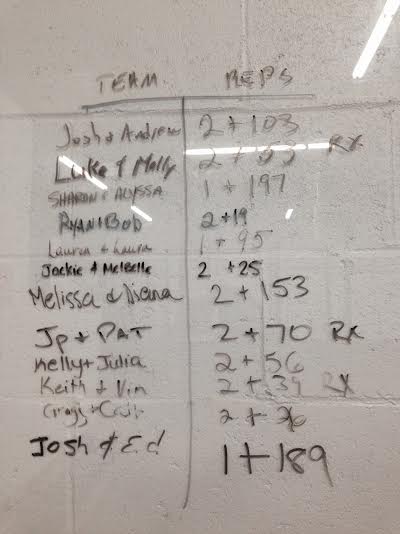 TEAM REPS
Josh & Andrew 2 + 103
Luke & Molly 2 + 55 RX
SHARON & ALYSSA 1 + 197
RYAN & BOB 2 + 19
Laura & Laura 1 + 95
Jackie & Melbelle 2 + 25
Melissa & Diana 2 + 153
Jp & PAT 2 + 70 RX
Kelly + Julia 2 + 56
Keith & Vin 2 + 39 RX
2 + 36
Josh & Ed 1 + 189